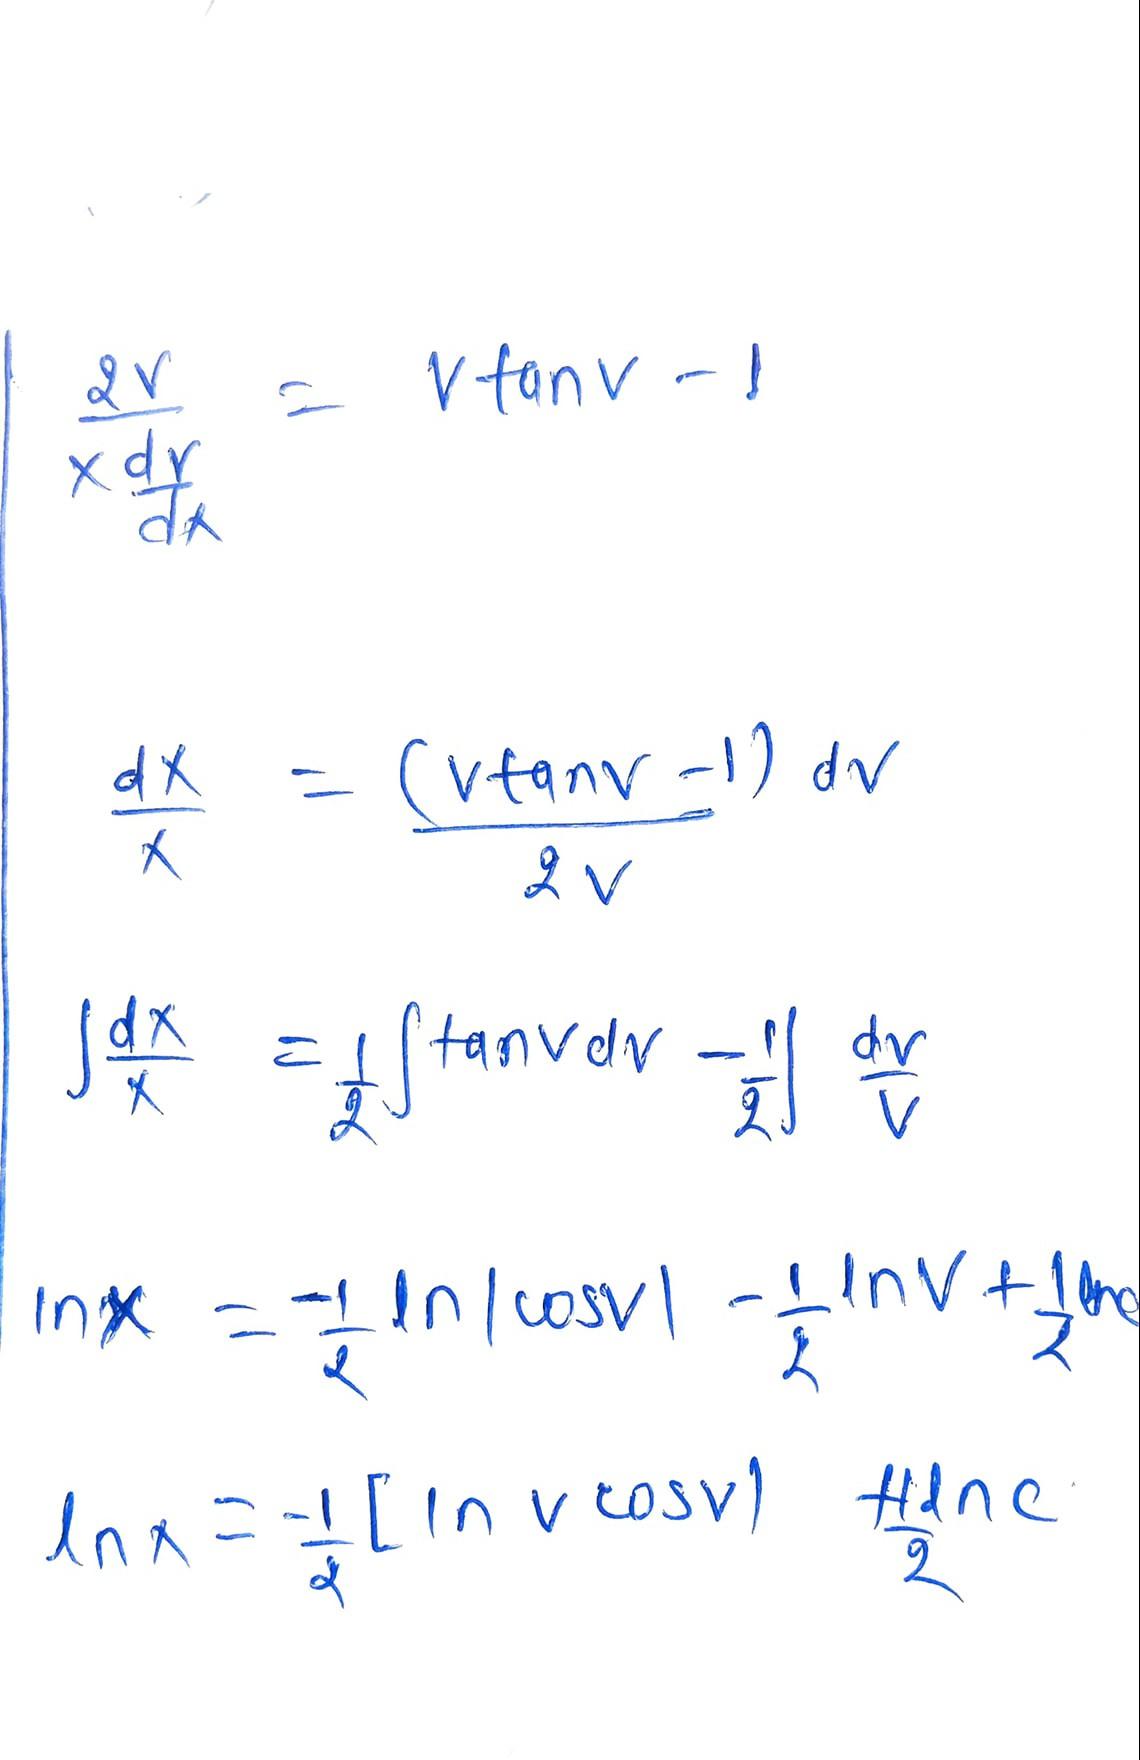 2v / (x dv/dx) = v tan v - 1
dx/x = (v tan v - 1) dv / 2v
∫ dx/x = 1/2 ∫ tan v dv - 1/2 ∫ dv/v
ln x = -1/2 ln |cos v| - 1/2 ln v + 1/2 ln c
ln x = -1/2 [ ln v cos v ) + 1/2 ln c